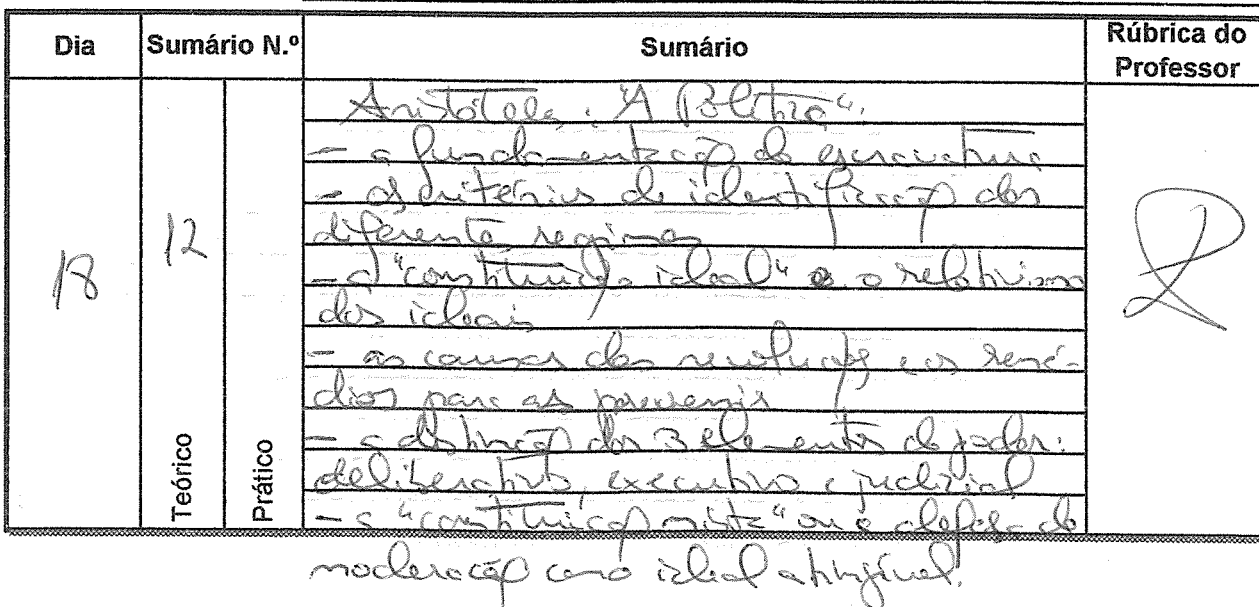 Dia Sumário N.º Sumário Rúbrica do Professor
18 12
Teórico Prático
Aristóteles: "A Política".
- a fundamentação da escravatura
- os critérios de identificação dos
diferentes regimes
- a "constituição ideal" e o relativismo
dos ideais
- as causas das revoluções e os remé-
dios para as prevenir
- a distinção dos 3 elementos do poder:
deliberativo, executivo e judicial
- a "constituição mista" ou a defesa da
moderação como ideal atingível.